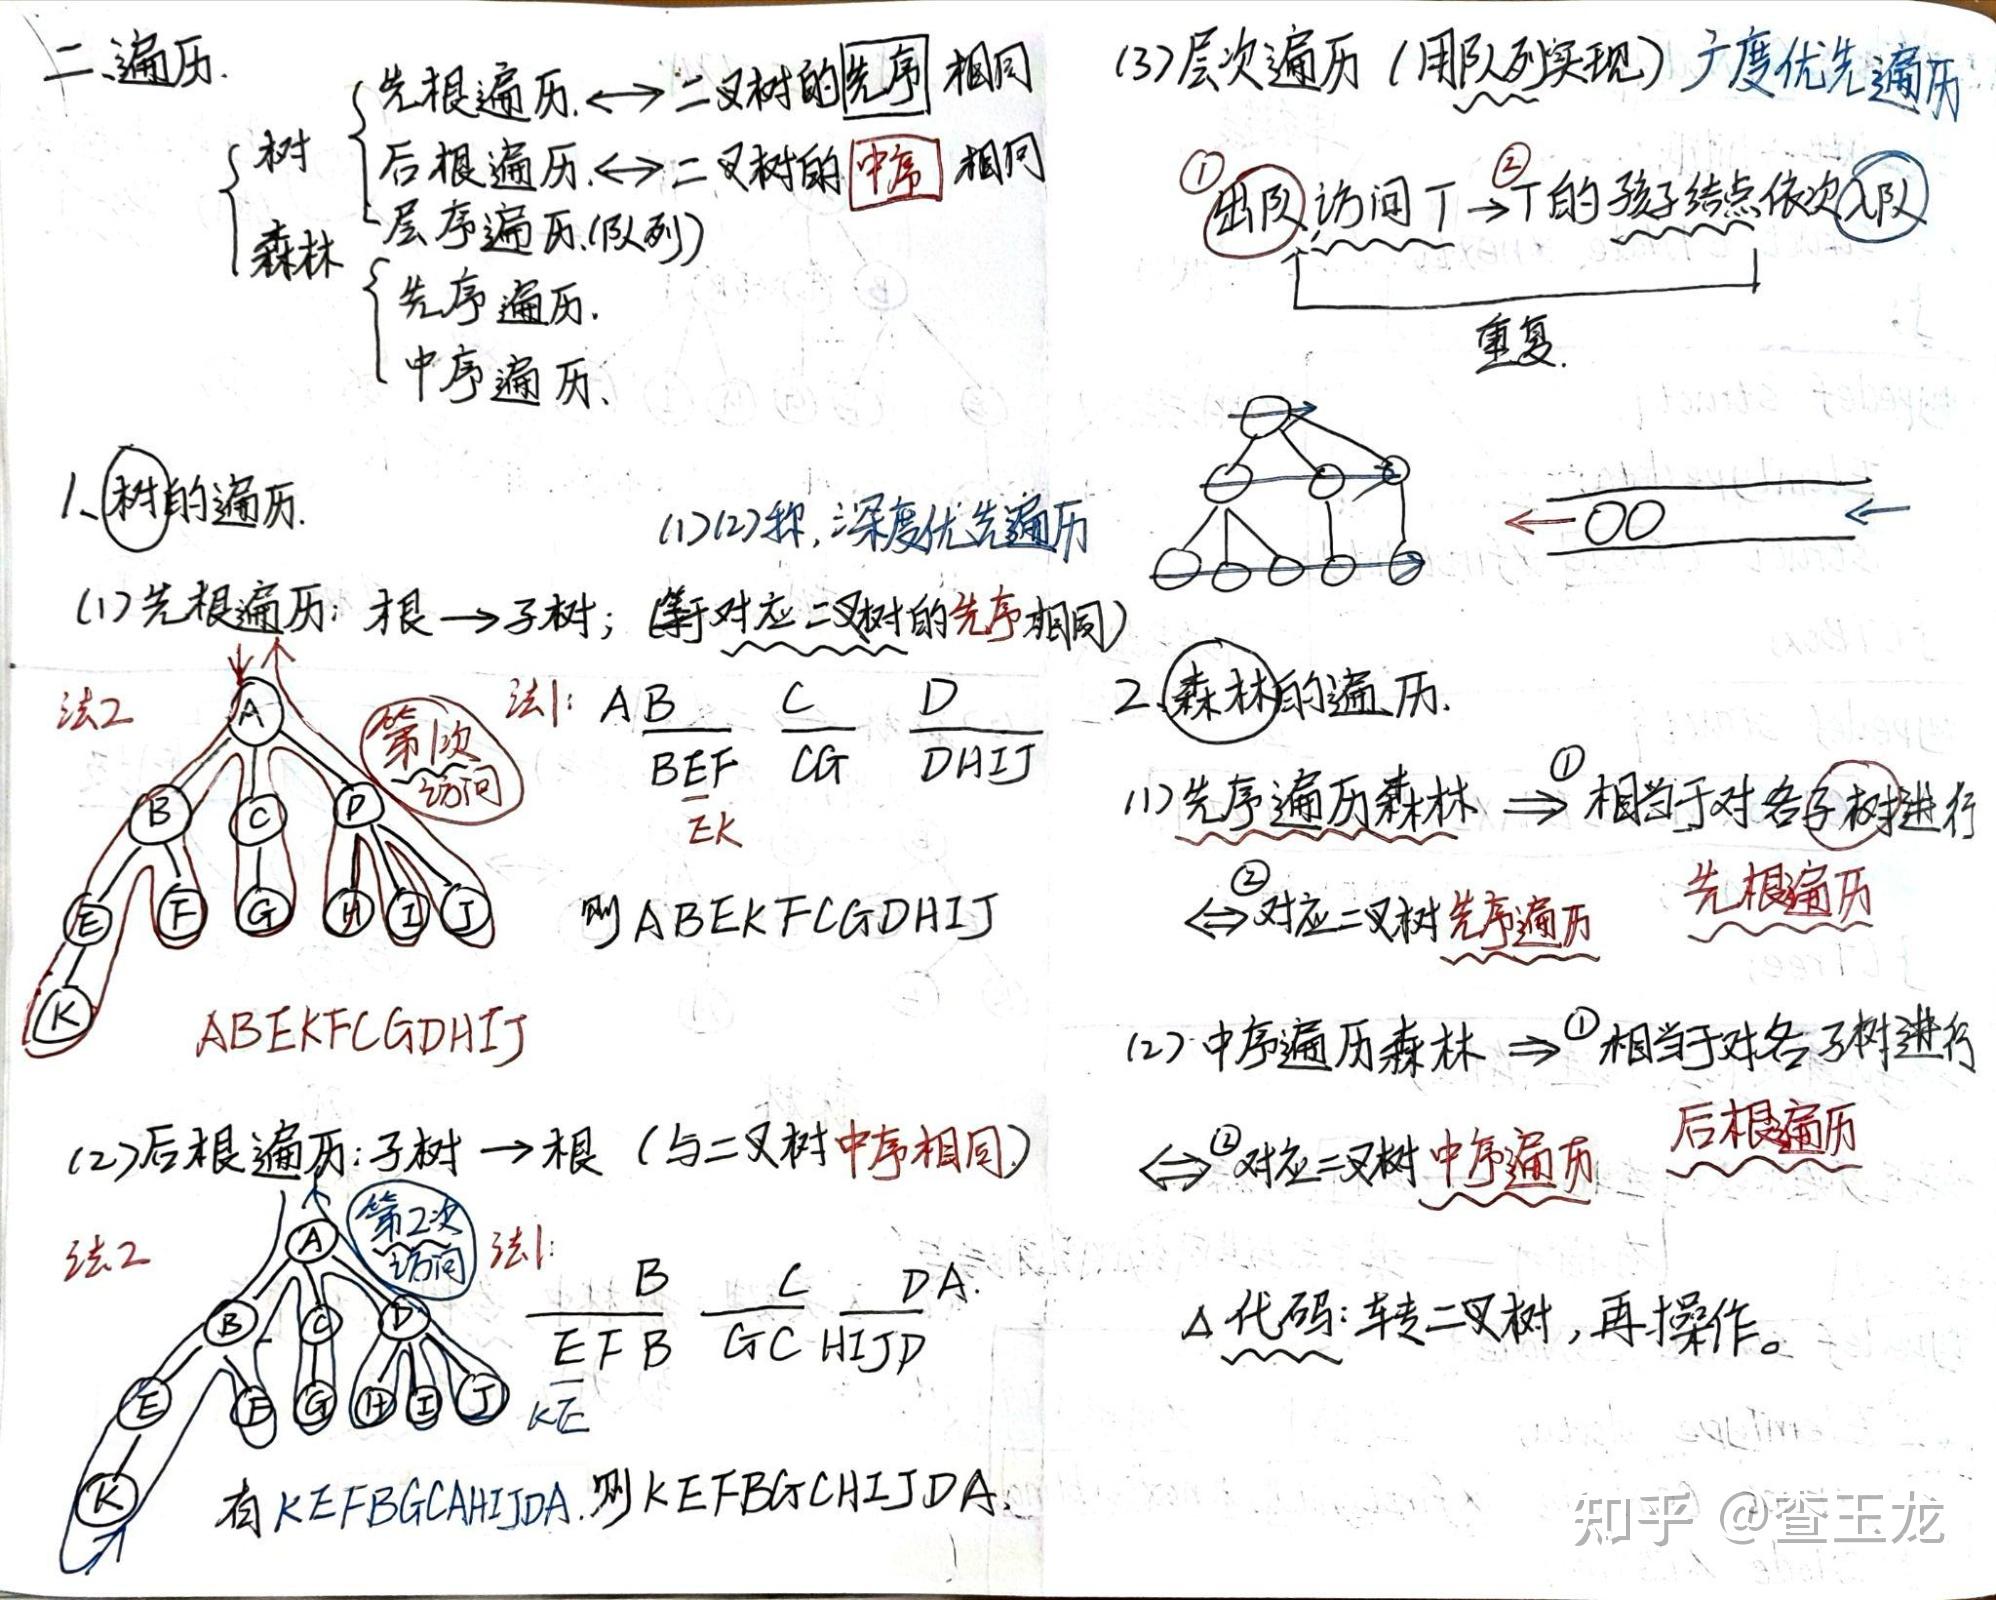 二、遍历.
树
先根遍历. ↔ 二叉树的先序 相同
后根遍历. ↔ 二叉树的中序 相同
层序遍历.(队列)
森林
先序遍历.
中序遍历、
1、树的遍历.
(1)(2)称:深度优先遍历
(1)先根遍历: 根→子树; (等于对应二叉树的先序相同)
法2
第1次
访问
A
B C D
E F G H I J
K
法1: A B C D
BEF CG DHIJ
EK
则ABEKFCGDHIJ
ABEKFCGDHIJ
(2)后根遍历:子树→根 (与二叉树中序相同)
法2
第2次
访问
A
B C D
E F G H I J
K
法1:
B C DA.
EFB GC HIJD
KE
有KEFBGCAHIJDA. 则KEFBGCHIJDA.
(3)层次遍历(用队列实现) 广度优先遍历
①出队,访问T→②T的孩子结点依次入队
重复.
2.森林的遍历.
(1)先序遍历森林 ⇒ ①相当于对各子树进行
先根遍历
⇔ ②对应二叉树先序遍历
(2)中序遍历森林 ⇒ ①相当于对各子树进行
后根遍历
⇔ ②对应二叉树中序遍历
△代码:转二叉树,再操作。
知乎 @查玉龙